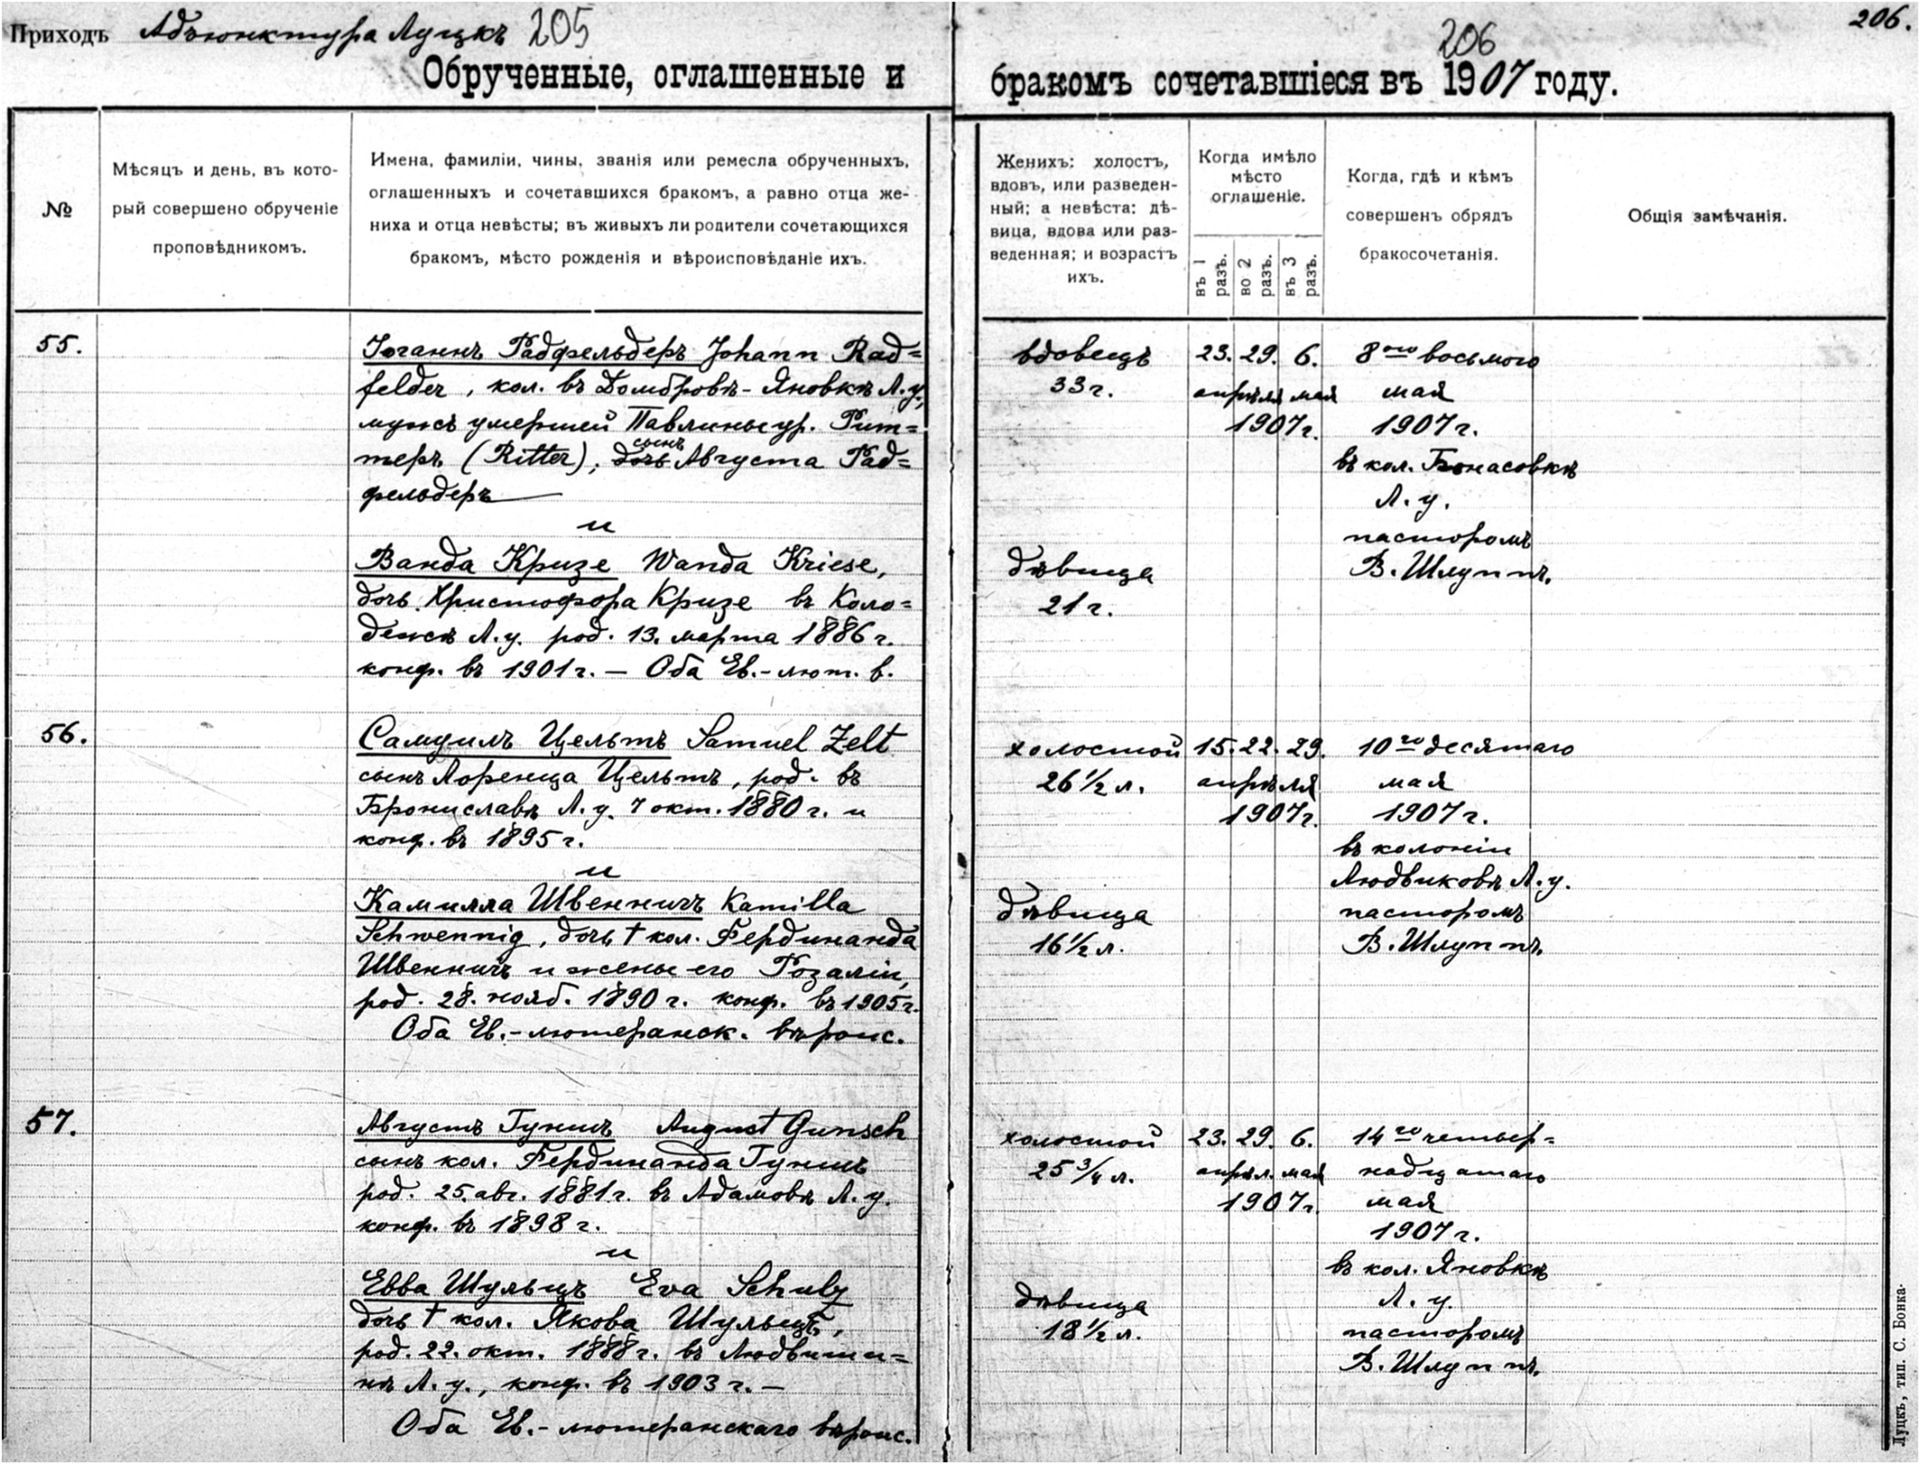 Приходъ Адъюнктура Луцкъ 205
206
206.
Обрученные, оглашенные и
бракомъ сочетавшіеся въ 1907 году.
№
Мѣсяцъ и день, въ кото-
рый совершено обрученіе
проповѣдникомъ.
Имена, фамиліи, чины, званія или ремесла обрученныхъ,
оглашенныхъ и сочетавшихся бракомъ, а равно отца же-
ниха и отца невѣсты; въ живыхъ ли родители сочетающихся
бракомъ, мѣсто рожденія и вѣроисповѣданіе ихъ.
Женихъ: холостъ,
вдовъ, или разведен-
ный; а невѣста: дѣ-
вица, вдова или раз-
веденная; и возрастъ
ихъ.
Когда имѣло
мѣсто
оглашеніе.
въ 1 разъ.
во 2 разъ.
въ 3 разъ.
Когда, гдѣ и кѣмъ
совершенъ обрядъ
бракосочетанія.
Общія замѣчанія.
55.
Іоганнъ Радфельдеръ Johann Rad=
felder, кол. въ Домбровѣ-Яновкѣ Л.у.,
мужъ умершей Павлины ур. Рит=
теръ (Ritter), дочь сынъ Августа Рад=
фельдеръ
и
Ванда Кризе Wanda Kriese,
дочь Христофора Кризе въ Коло=
денскѣ Л.у. род. 13. марта 1886 г.
конф. въ 1901 г. — Оба Ев.-лют. в.
вдовецъ
33 г.
дѣвица
21 г.
23. 29. 6.
апрѣля мая
1907 г.
8ого восьмого
мая
1907 г.
въ кол. Бонасовкѣ
Л. у.
пасторомъ
В. Шлуппъ.
56.
Самуилъ Цельтъ Samuel Zelt
сынъ Лоренца Цельтъ, род. въ
Брониславѣ Л. у. 7 окт. 1880 г. и
конф. въ 1895 г.
и
Камилла Швеннигъ Kamilla
Schwennig, дочь † кол. Фердинанда
Швеннигъ и жены его Розаліи,
род. 28. нояб. 1890 г. конф. въ 1905 г.
Оба Ев.-лютеранск. вѣроис.
холостой
26 1/2 л.
дѣвица
16 1/2 л.
15. 22. 29.
апрѣля
1907 г.
10го десятаго
мая
1907 г.
въ колоніи
Людвиковѣ Л. у.
пасторомъ
В. Шлуппъ.
57.
Августъ Гуншъ August Gunsch
сынъ кол. Фердинанда Гуншъ
род. 25. авг. 1881 г. въ Адамовѣ Л. у.
конф. въ 1898 г.
и
Евва Шульцъ Eva Schulz
дочь † кол. Якова Шульцъ,
род. 22. окт. 1888 г. въ Людвиши=
нѣ Л. у., конф. въ 1903 г. —
Оба Ев.-лютеранскаго вѣроис.
холостой
25 3/4 л.
дѣвица
18 1/2 л.
23. 29. 6.
апрѣл. мая
1907 г.
14го четыр=
надцатаго
мая
1907 г.
въ кол. Яновкѣ
Л. у.
пасторомъ
В. Шлуппъ.
Луцкъ, тип. С. Бонка.